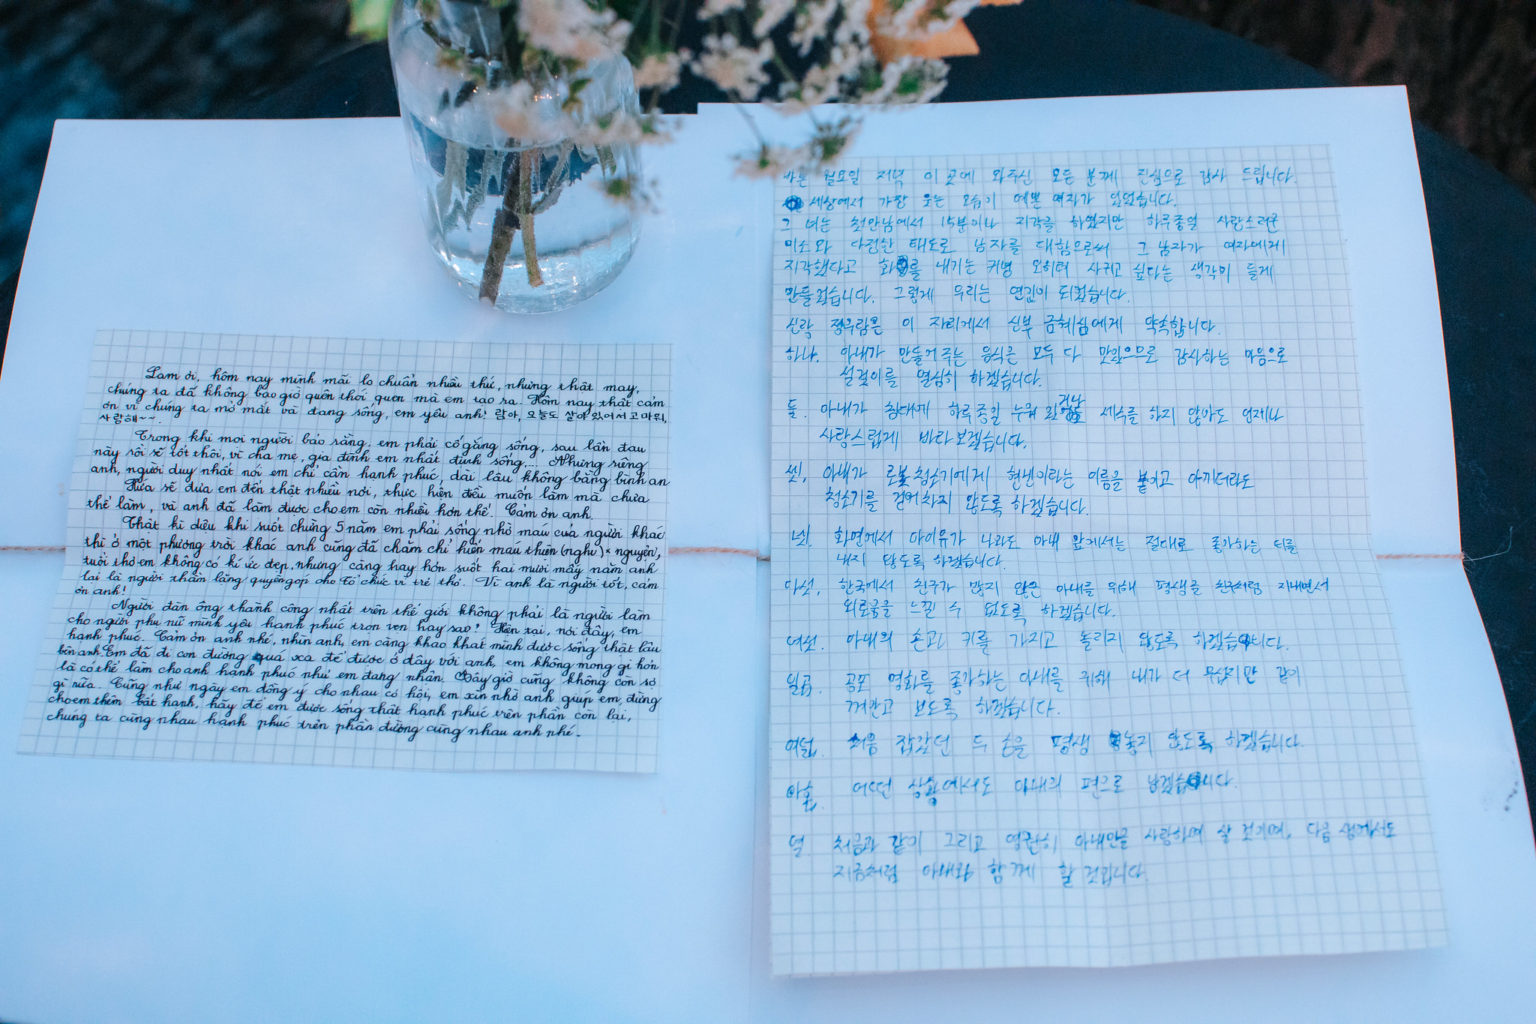 Lam ơi, hôm nay mình mãi lo chuẩn nhiều thứ, nhưng thật may,
chúng ta đã không bao giờ quên thói quen mà em tạo ra. Hôm nay thật cảm
ơn vì chúng ta mở mắt và đang sống, em yêu anh! 람아, 오늘도 살아있어서 고마워,
사랑해~~
Trong khi mọi người bảo rằng, em phải cố gắng sống, sau lần đau
này rồi sẽ tốt thôi, vì cha mẹ, gia đình em nhất định sống,... Nhưng riêng
anh, người duy nhất nói em chỉ cần hạnh phúc, dài lâu không bằng bình an
Hứa sẽ đưa em đến thật nhiều nơi, thực hiện điều muốn làm mà chưa
thể làm, và anh đã làm được cho em còn nhiều hơn thế. Cảm ơn anh.
Thật kì diệu khi suốt chừng 5 năm em phải sống nhờ máu của người khác
thì ở một phương trời khác anh cũng đã chăm chỉ hiến máu thiện (nghĩ) nguyện,
tuổi thơ em không có kí ức đẹp, nhưng càng hay hơn suốt hai mươi mấy năm anh
lại là người thầm lặng quyên góp cho Tổ chức vì trẻ thơ. Vì anh là người tốt, cảm
ơn anh!
Người đàn ông thành công nhất trên thế giới không phải là người làm
cho người phụ nữ mình yêu hạnh phúc trọn vẹn hay sao? Hiện tại, nơi đây, em
hạnh phúc. Cảm ơn anh nhé, nhìn anh, em càng khao khát mình được sống thật lâu
bên anh. Em đã đi con đường quá xa để được ở đây với anh, em không mong gì hơn
là có thể làm cho anh hạnh phúc như em đang nhận. Bây giờ cũng không còn sợ
gì nữa. Cũng như ngày em đồng ý cho nhau cơ hội, em xin nhờ anh giúp em, đừng
cho em thêm bất hạnh, hãy để em được sống thật hạnh phúc trên phần còn lại,
chúng ta cùng nhau hạnh phúc trên phần đường cùng nhau anh nhé.
바쁜 월요일 저녁 이곳에 와주신 모든 분께 진심으로 감사 드립니다.
세상에서 가장 웃는 모습이 예쁜 여자가 있었습니다.
그 녀는 첫만남에서 15분이나 지각을 하였지만 하루종일 사랑스러운
미소와 다정한 태도로 남자를 대함으로써 그 남자가 여자에게
지각했다고 화를 내기는 커녕 오히려 사귀고 싶다는 생각이 들게
만들었습니다. 그렇게 우리는 연인이 되었습니다.
신랑 정우람은 이 자리에서 신부 금혜심에게 약속합니다.
하나. 아내가 만들어주는 음식은 모두 다 맛있으므로 감사하는 마음으로
설겆이를 열심히 하겠습니다.
둘. 아내가 침대에 하루종일 누워 있거나 세수를 하지 않아도 언제나
사랑스럽게 바라보겠습니다.
셋, 아내가 로봇 청소기에게 현빈이라는 이름을 붙이고 아끼더라도
청소기를 걷어차지 않도록 하겠습니다.
넷. 화면에서 아이유가 나와도 아내 앞에서는 절대로 좋아하는 티를
내지 않도록 하겠습니다.
다섯, 한국에서 친구가 많지 않은 아내를 위해 평생을 친구처럼 지내면서
외로움을 느낄 수 없도록 하겠습니다.
여섯. 아내의 손과 키를 가지고 놀리지 않도록 하겠습니다.
일곱. 공포 영화를 좋아하는 아내를 위해 내가 더 무섭지만 같이
껴안고 보도록 하겠습니다.
여덟. 처음 잡았던 두 손을 평생 놓지 않도록 하겠습니다.
아홉. 어떤 상황에서도 아내의 편으로 남겠습니다.
열 처음과 같이 그리고 영원히 아내만을 사랑하며 살 것이며, 다음 생에서도
지금처럼 아내와 함께 할 것입니다.